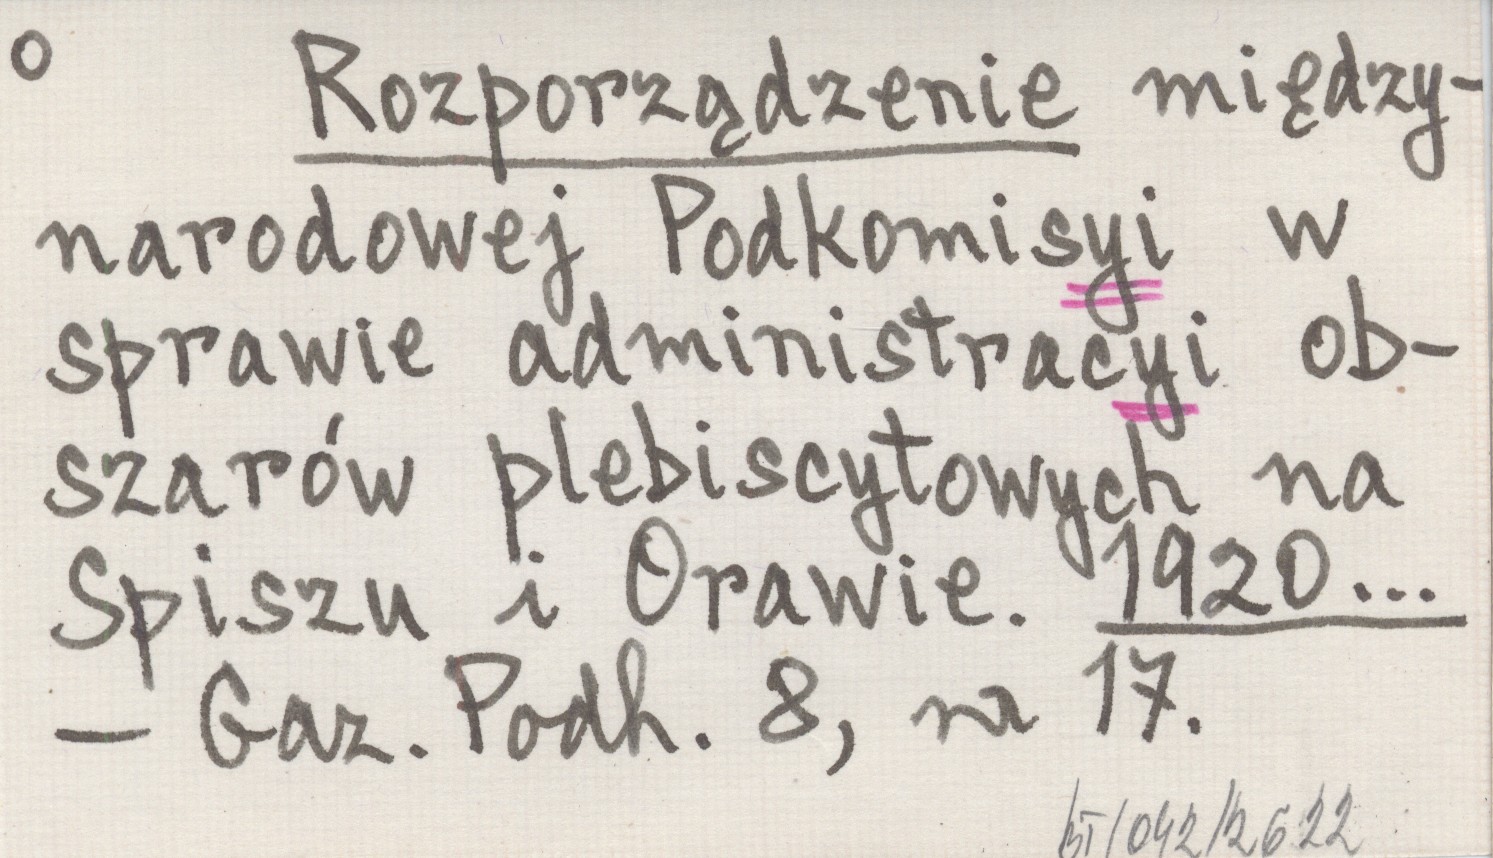 o Rozporządzenie między-
narodowej Podkomisyi w
sprawie administracyi ob-
szarów plebiscytowych na
Spiszu i Orawie. 1920...
— Gaz. Podh. 8, nr 17.
BT/042/2622